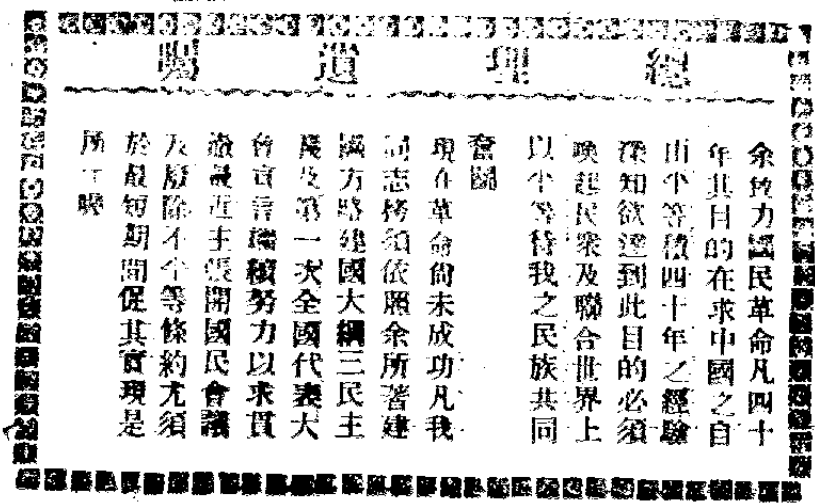 總理遺囑
余致力國民革命凡四十
年其目的在求中國之自
由平等積四十年之經驗
深知欲達到此目的必須
喚起民衆及聯合世界上
以平等待我之民族共同
奮鬭
現在革命尚未成功凡我
同志務須依照余所著建
國方略建國大綱三民主
義及第一次全國代表大
會宣言繼續努力以求貫
徹最近主張開國民會議
及廢除不平等條約尤須
於最短期間促其實現是
所至囑